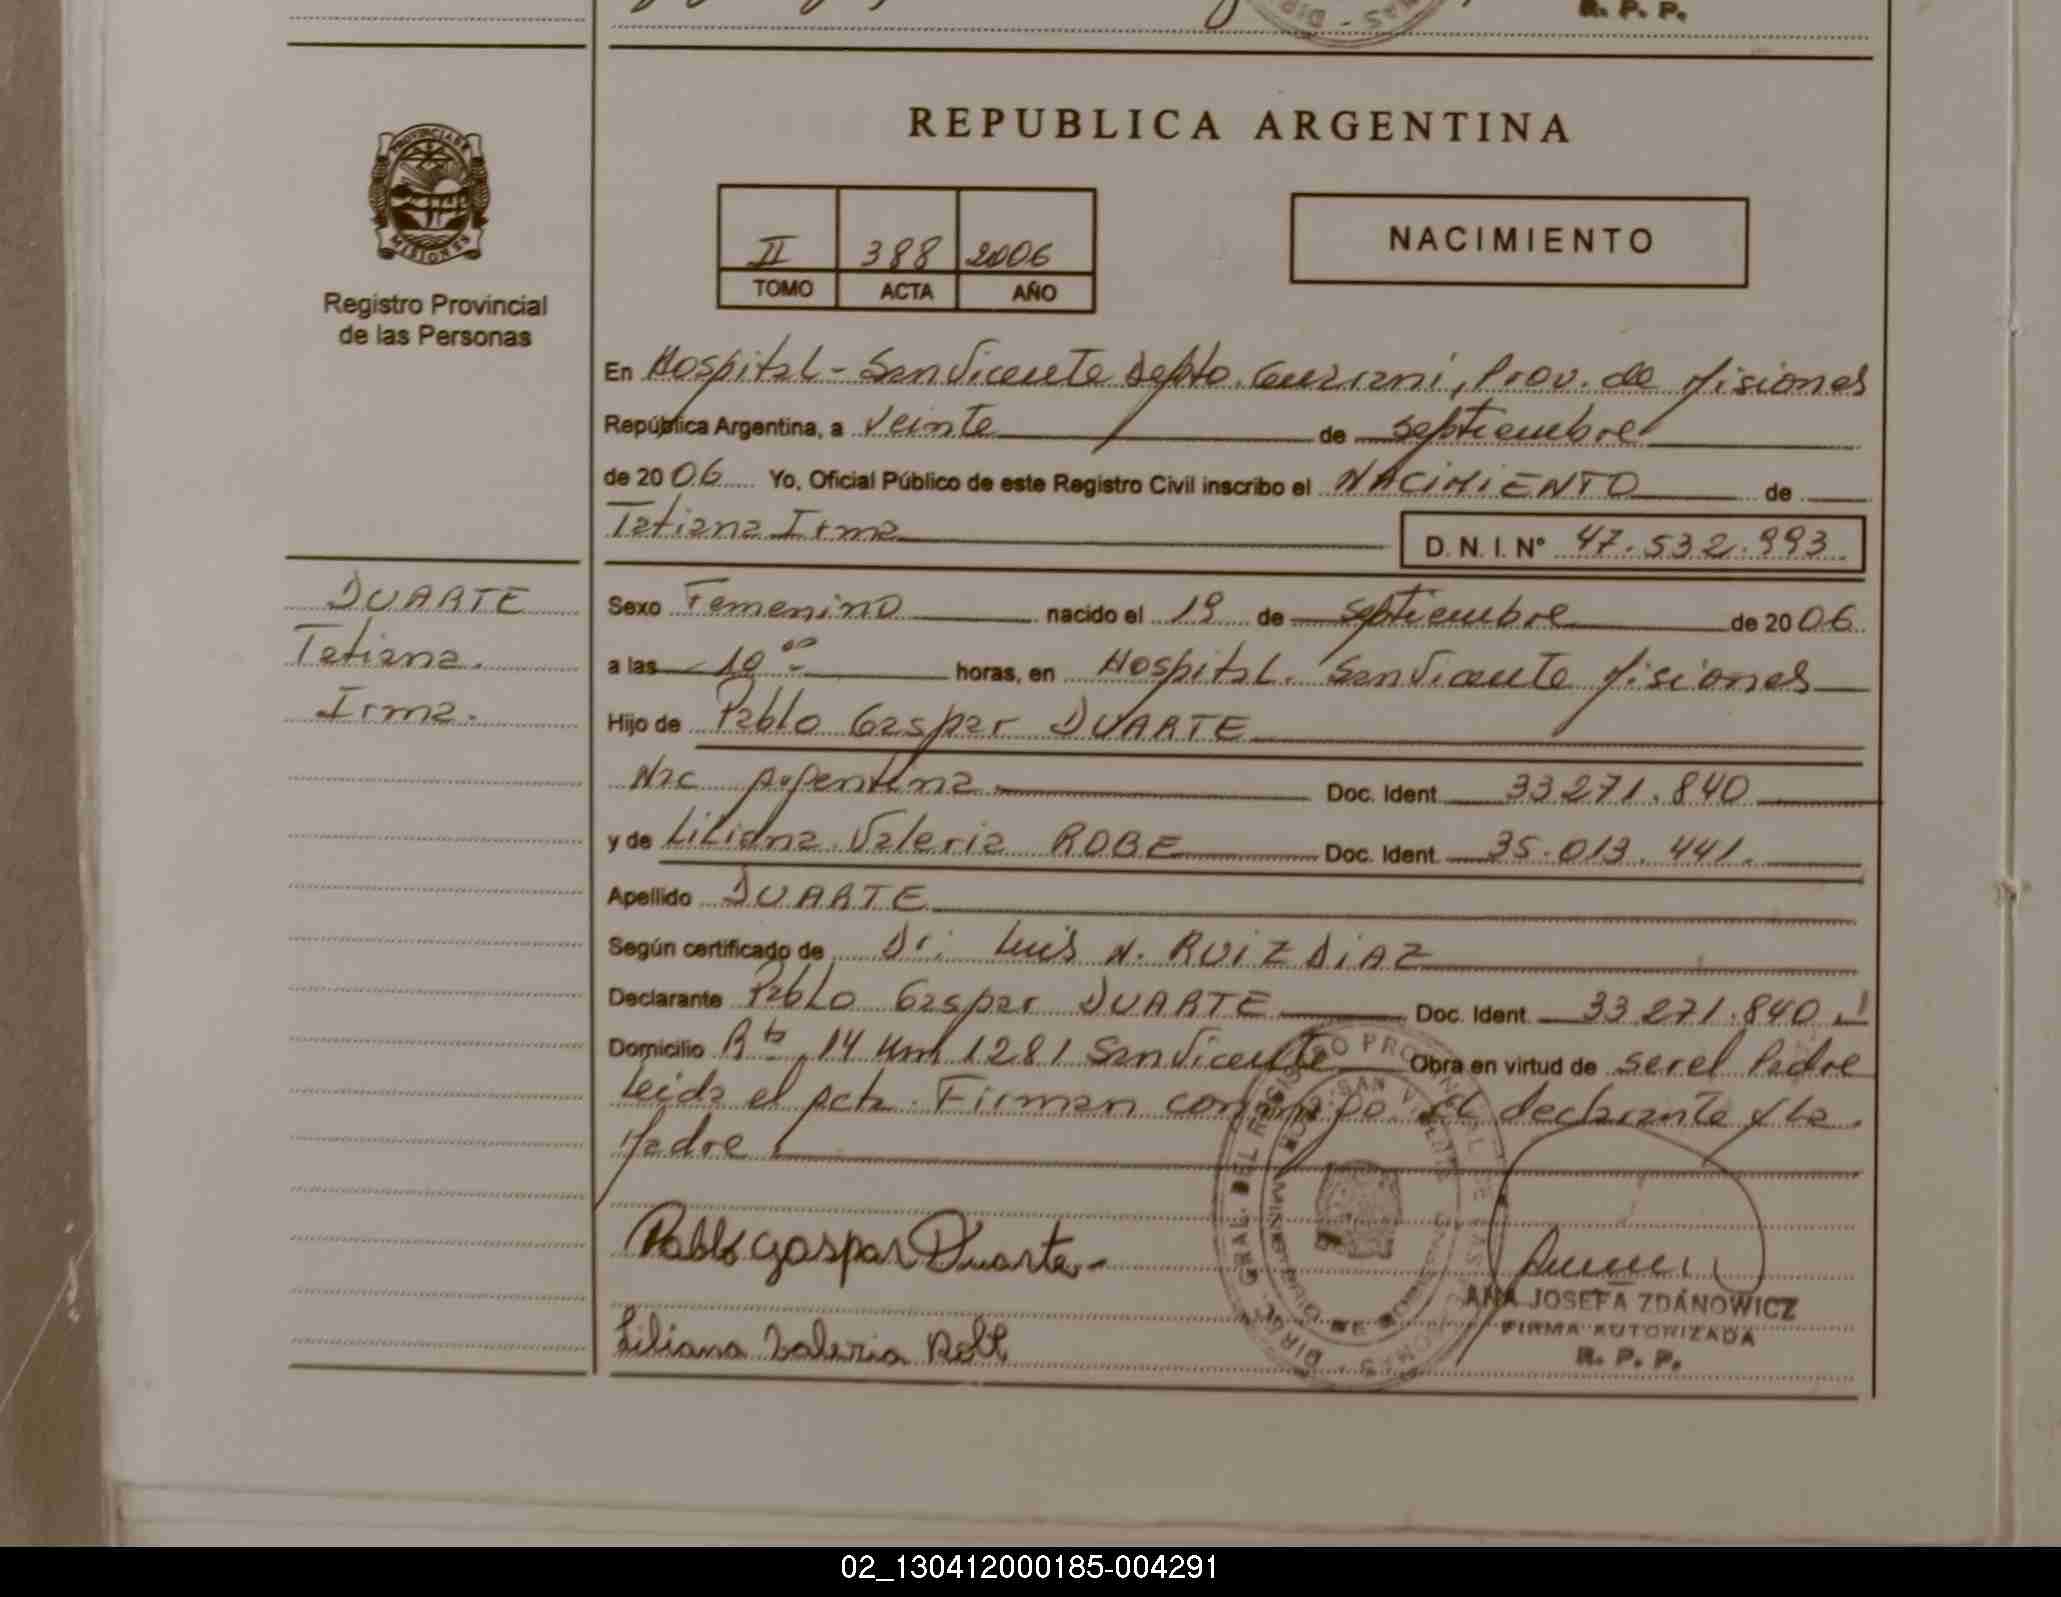 R. P. P.
REPUBLICA ARGENTINA
PROVINCIA DE MISIONES
II 388 2006
TOMO ACTA AÑO
NACIMIENTO
Registro Provincial
de las Personas
En Hospital - San Vicente Depto. Guarani, Prov. de Misiones
República Argentina, a Veinte de septiembre
de 2006 Yo, Oficial Público de este Registro Civil inscribo el NACIMIENTO de
Tatiana Irma
D. N. I. Nº 47.532.993
DUARTE
Tatiana
Irma.
Sexo Femenino nacido el 19 de septiembre de 2006
a las 10 oo horas, en Hospital. San Vicente Misiones
Hijo de Pablo Gaspar DUARTE
Nac Argentina Doc. Ident 33 271.840
y de Liliana Valeria ROBE Doc. Ident. 35.013.441.
Apellido DUARTE
Según certificado de Dr. Luis N. RUIZ DIAZ
Declarante Pablo Gaspar DUARTE Doc. Ident 33 271.840
Domicilio Rta. 14 Km 1281 San Vicente Obra en virtud de ser el Padre
Leida el Acta. Firman conmigo el declarante y la
Madre
Pablo Gaspar Duarte
Liliana Valeria
ANA JOSEFA ZDANOWICZ
FIRMA AUTORIZADA
R. P. P.
02_130412000185-004291